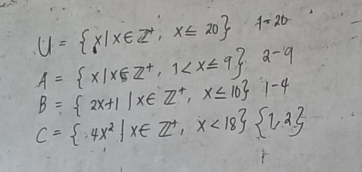 U = {x|x∈ℤ⁺, x≤ 20} 1-20
A = {x|x∈ℤ⁺, 1<x≤9} 2-9
B = {2x+1 |x∈ ℤ⁺, x≤10} 1-4
C = {4x² |x∈ ℤ⁺, x<18} {1,2}